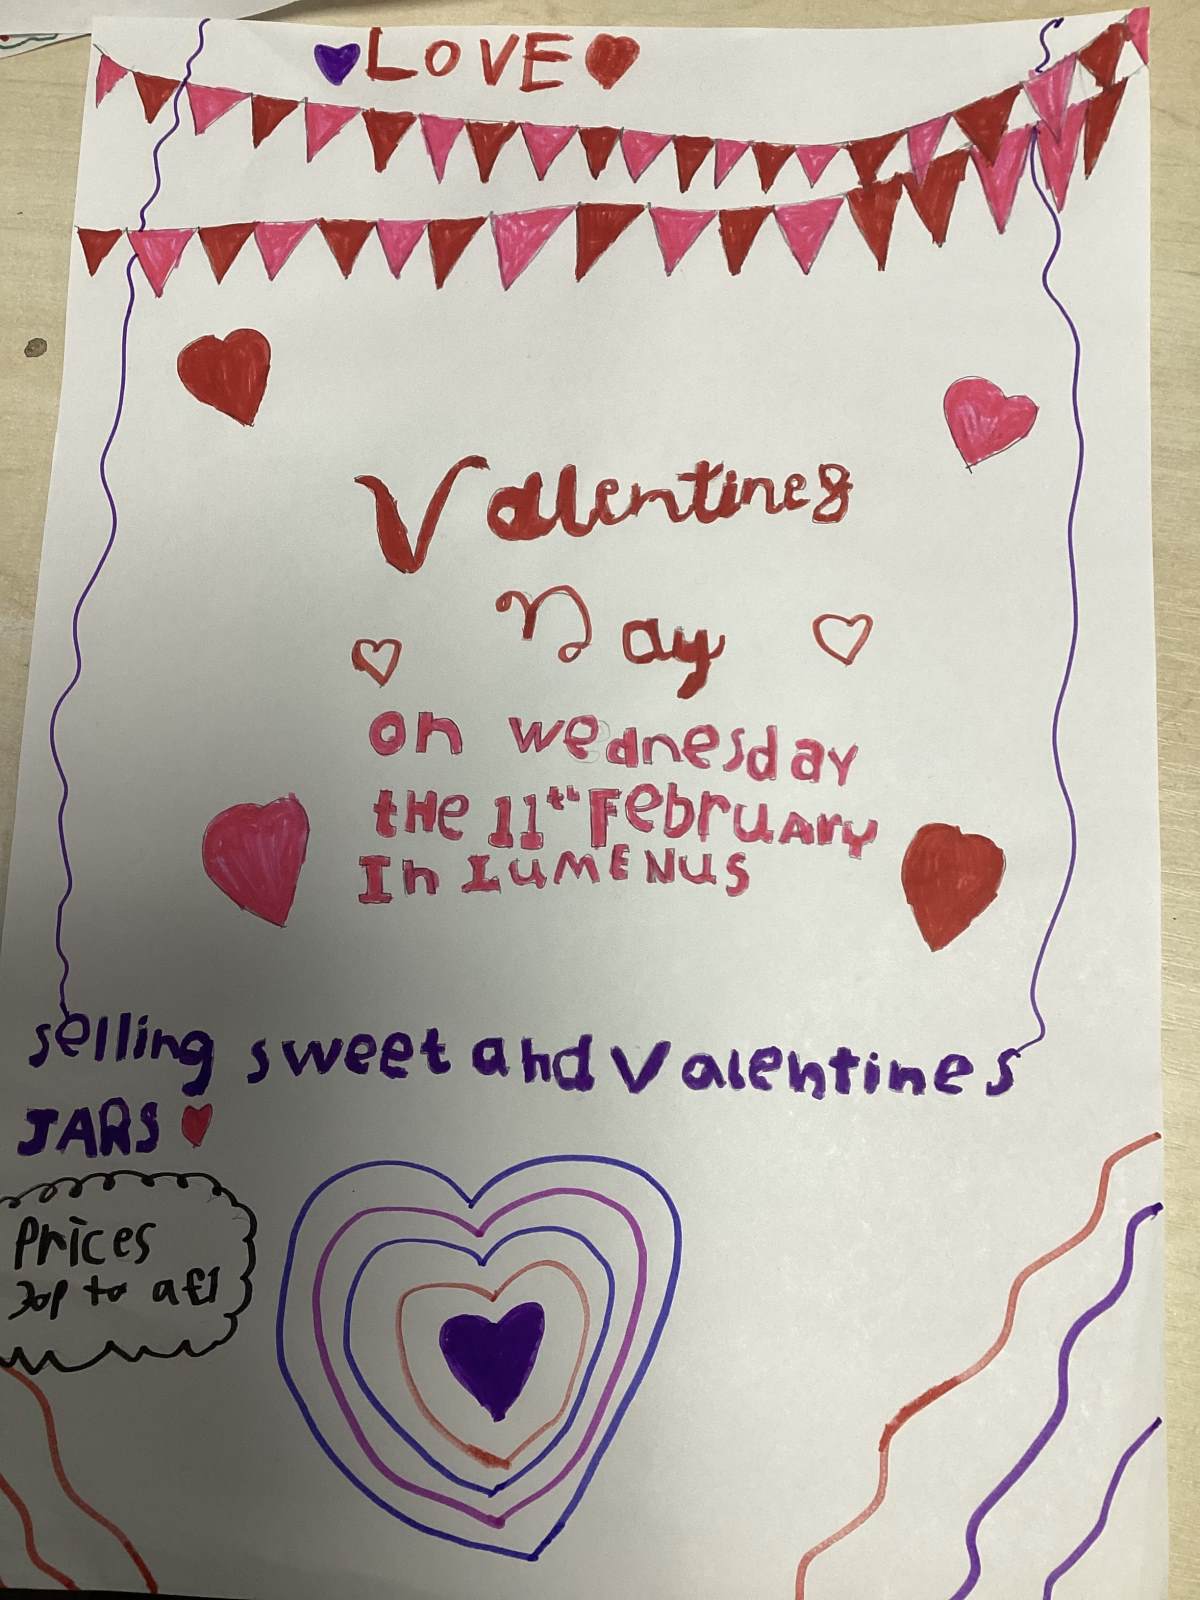 LOVE
Valentines
Day
on wednesday
tHe 11th February
In LUMENUS
selling sweet and Valentines
JARS
Prices
30p to a £1